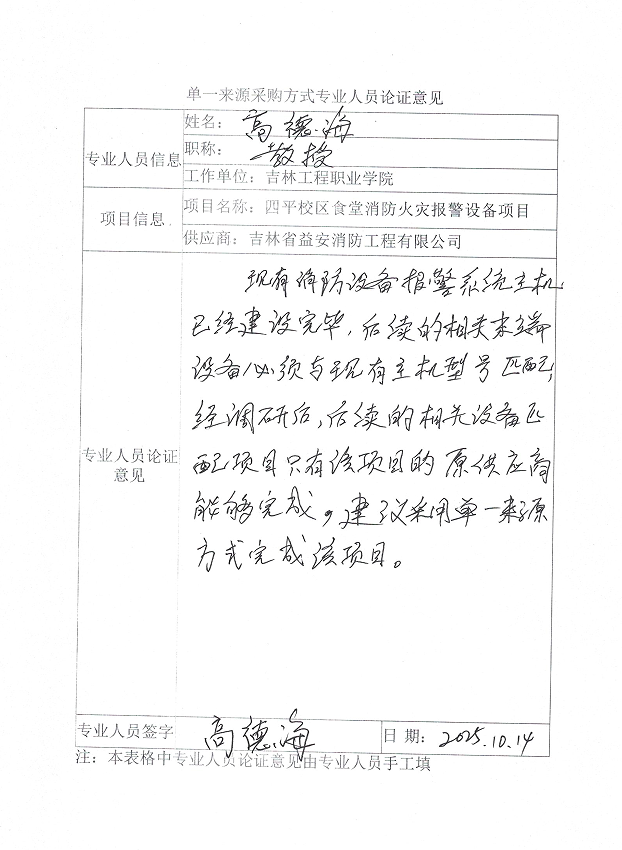 单一来源采购方式专业人员论证意见
专业人员信息
姓名：高德海
职称：教授
工作单位：吉林工程职业学院
项目信息
项目名称：四平校区食堂消防火灾报警设备项目
供应商：吉林省益安消防工程有限公司
专业人员论证
意见
现有消防设备报警系统主机
已经建设完毕，后续的相关末端
设备必须与现有主机型号匹配，
经调研后，后续的相关设备匹
配项目只有该项目的原供应商
能够完成，建议采用单一来源
方式完成该项目。
专业人员签字 高德海 日期：2025.10.14
注：本表格中专业人员论证意见由专业人员手工填